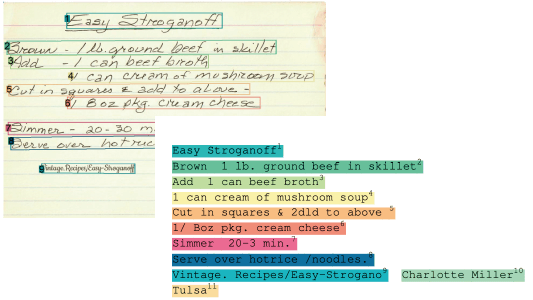 Easy Stroganoff
Brown - 1 lb. ground beef in skillet
Add - 1 can beef broth
1 can cream of mushroom soup
Cut in squares & add to above -
1 8oz pkg. cream cheese
Simmer - 20-30 m
Serve over hot ric
Vintage.Recipes/Easy-Stroganoff
Easy Stroganoff1
Brown 1 lb. ground beef in skillet2
Add 1 can beef broth3
1 can cream of mushroom soup4
Cut in squares & 2dld to above 5
1/ Boz pkg. cream cheese6
Simmer 20-3 min.7
Serve over hotrice /noodles.8
Vintage. Recipes/Easy-Strogano9 Charlotte Miller10
Tulsa11